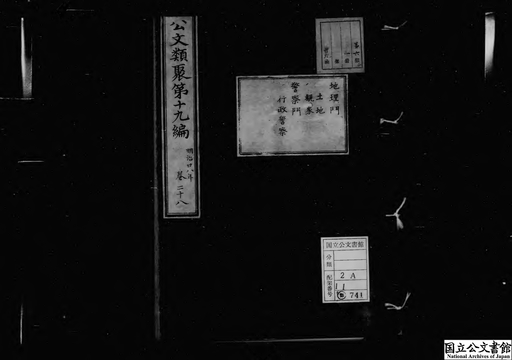 公文類聚第十九編
明治廿八年
巻二十八
地理門
土地
警察門
行政警察
国立公文書館
分類
配架番号
2A
11
741
国立公文書館
National Archives of Japan